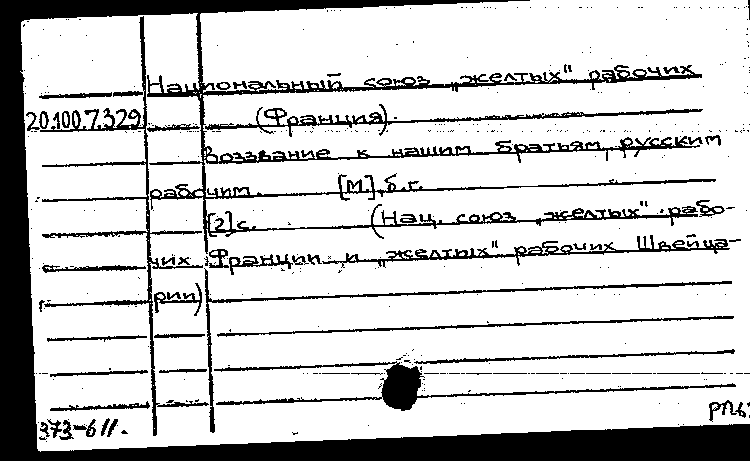 Национальный союз „желтых“ рабочих
20.100.7.329 (Франция).
Воззвание к нашим братьям, русским
рабочим. [М.], б.г.
[2] с. (Нац. союз „желтых“ рабо-
чих Франции и „желтых“ рабочих Швейца-
рии)
373-611.